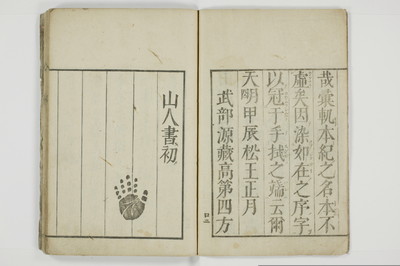 哉彙軌本紀之名本不
虛矣因染如在之序字
以冠于手拭之端云爾
天明甲辰松王正月
武部源藏高第四方
山人書初